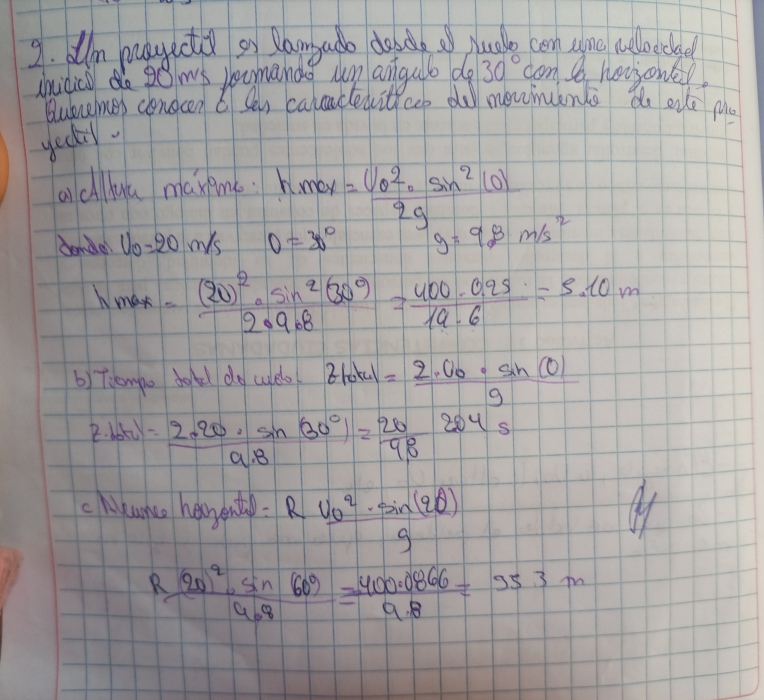 2. Un proyectil es lanzado desde el suelo con una velocidad
inicial de 20 m/s formando un ángulo de 30° con la horizontal.
Queremos conocer las características del movimiento de este pro-
yectil.
a) Altura máxima: h max = Vo² · sin² (θ) / 2g
donde: Vo = 20 m/s θ = 30° g = 9,8 m/s²
h max = (20)² · sin² (30°) / 2 · 9.8 = 400 · 0.25 / 19.6 = 5.10 m
b) Tiempo total de vuelo: t total = 2 · Vo · sin (θ) / g
t total = 2 · 20 · sin (30°) / 9.8 = 20 / 9.8 2.04 s
c Alcance horizontal = R Vo² · sin (2θ) / g
R (20)² · sin (60°) / 9.8 = 400 · 0866 / 9.8 = 35.3 m